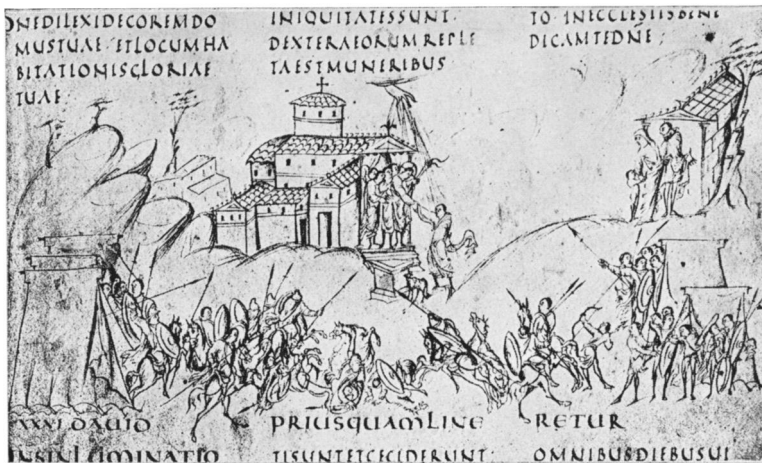 DNEDILEXIDECOREMDO
MUSTUAE·ETLOCUMHA
BITATIONISGLORIAE
TUAE·
INIQUITATESSUNT·
DEXTERAEORUMREPLE
TAESTMUNERIBUS
TO·INECCLESIISBENE
DICAMTEDNE;
XXVI DAVID
PRIUSQUAMLINE
RETUR
INLUMINATIO
TISUNTETCECIDERUNT:
OMNIBUSDIEBUSUI